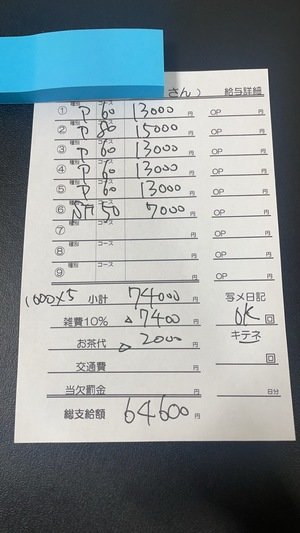 さん) 給与詳細
① 種別 P コース 60 13000 円 OP 円
② 種別 P コース 80 15000 円 OP 円
③ 種別 P コース 60 13000 円 OP 円
④ 種別 P コース 60 13000 円 OP 円
⑤ 種別 P コース 60 13000 円 OP 円
⑥ 種別 コース 50 7000 円 OP 円
⑦ 種別 コース 円 OP 円
⑧ 種別 コース 円 OP 円
⑨ 種別 コース 円 OP 円
1000×5 小計 74000 円 写メ日記
雑費10% △7400 円 OK 回
お茶代 △2000 円 キテネ
交通費 円 回
当欠罰金 円 日分
総支給額 64600 円